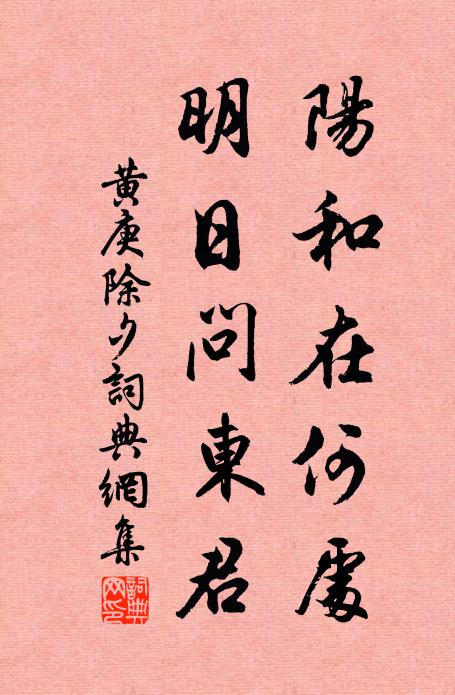 陽和在何處
明日問東君
黃庚除夕詞典網集
詞典
网印